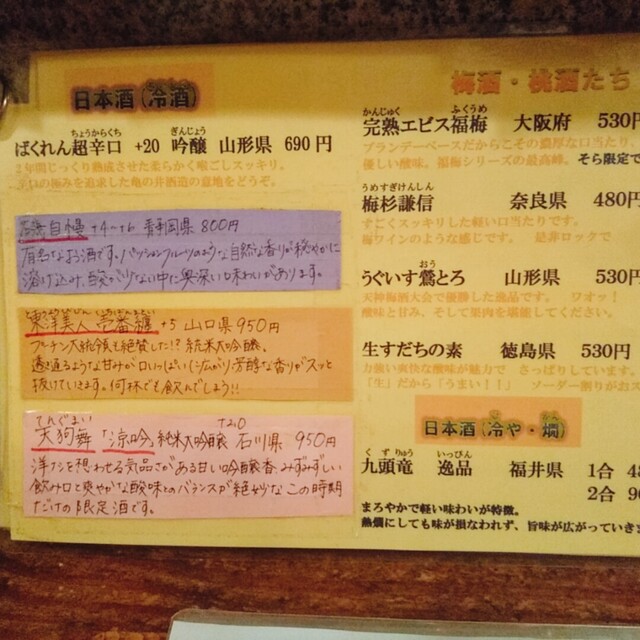 日本酒（冷酒）
ばくれん超辛口 +20 吟醸 山形県 690円
ちょうからくち ぎんじょう
2年間じっくり熟成させた柔らかく喉ごしスッキリ。
辛口の極みを追求した亀の井酒造の意地をどうぞ。
自慢 +4~+6 静岡県 800円
有名なお酒です。パッションフルーツのような自然な香りが穏やかに
溶け込み、酸が少ない中に奥深い味わいがあります。
東洋美人 壱番纏 +5 山口県 950円
プーチン大統領も絶賛した!? 純米大吟醸。
透過るような甘みが口いっぱいに広がり芳醇な香りがスッと
抜けていきます。何杯でも飲んでしまう!!
てんぐまい
天狗舞 「涼吟」純米大吟醸 +2.0 石川県 950円
洋ナシを想わせる気品さがある甘い吟醸香、みずみずしい
飲み口と爽やかな酸味とのバランスが絶妙なこの時期
だけの限定酒です。
梅酒・桃酒たち
かんじゅく ふくうめ
完熟エビス福梅 大阪府 530円
ブランデーベースだからこその濃厚な口当たり、
優しい酸味。福梅シリーズの最高峰。そら限定で
うめすぎけんしん
梅杉謙信 奈良県 480円
すごくスッキリした軽い口当たりです。
梅ワインのような感じです。 是非ロックで
おう
うぐいす鶯とろ 山形県 530円
天神梅酒大会で優勝した逸品です。 ワオッ！
酸味と甘み、そして果肉を堪能してください。
生すだちの素 徳島県 530円
力強い爽快な酸味が魅力で さっぱりしています。
「生」だから「うまい！！」 ソーダー割りがおス
日本酒（冷や・燗）
くずりゅう いっぴん
九頭竜 逸品 福井県 1合 48
2合 90
まろやかで軽い味わいが特徴。
熱燗にしても味が損なわれず、旨味が広がっていきま